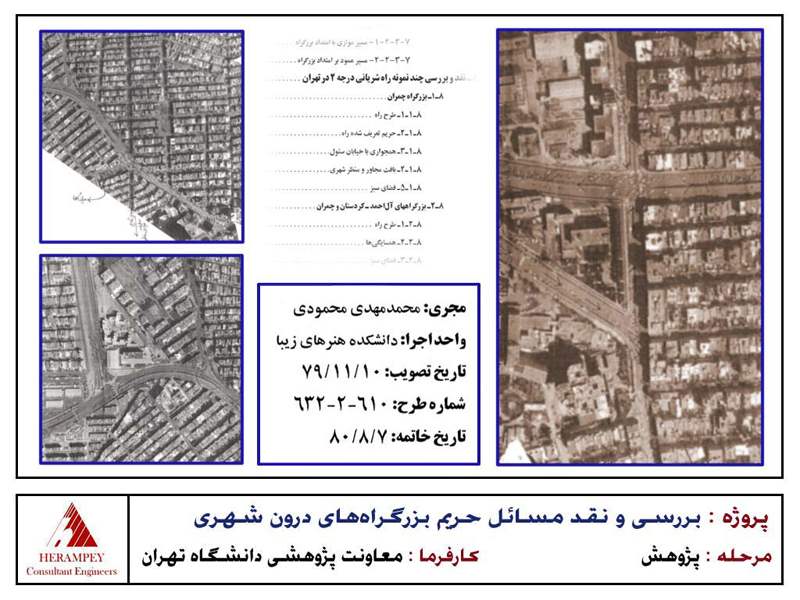 ۷-۳-۲-۱- مسیر موازی با امتداد بزرگراه ..........
۷-۳-۲-۲- مسیر عمود بر امتداد بزرگراه ..........
نقد و بررسی چند نمونه راه شریانی درجه ۲ در تهران
۸-۱-بزرگراه چمران ..........
۸-۱-۱-طرح راه ..........
۸-۱-۲-حریم تعریف شده راه ..........
۸-۱-۳-همجواری با خیابان سئول ..........
۸-۱-۴-بافت مجاور و منظر شهری ..........
۸-۱-۵-فضای سبز ..........
۸-۲-بزرگراههای آل‌احمد-کردستان و چمران ..........
۸-۲-۱-طرح راه ..........
۸-۲-۲-همسایگی‌ها ..........
۸-۲-۳-فضای سبز ..........
مجری: محمدمهدی محمودی
واحد اجرا: دانشکده هنرهای زیبا
تاریخ تصویب: ۷۹/۱۱/۱۰
شماره طرح: ۶۱۰-۲-۶۳۲
تاریخ خاتمه: ۸۰/۸/۷
پروژه : بررسی و نقد مسائل حریم بزرگراه‌های درون شهری
مرحله : پژوهش
کارفرما : معاونت پژوهشی دانشگاه تهران
HERAMPEY
Consultant Engineers